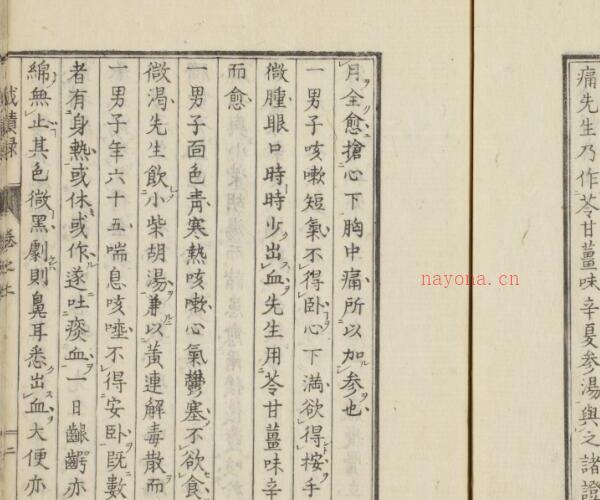 痛先生乃作苓甘薑味辛夏参湯與之諸證
月全愈搶心下胸中痛所以加参也
一男子咳嗽短氣不得臥心下満欲得按手
微腫眼口時時少出血先生用苓甘薑味辛
而愈
一男子面色青寒熱咳嗽心氣鬱塞不欲食
微渴先生飲小柴胡湯兼以黄連解毒散而
一男子年六十五喘息咳唾不得安臥既數
者有身熱或休或作遂吐痰血一日齦齶亦
綿無止其色微黒劇則鼻耳悉出血大便亦
成蹟録 卷之二 二
nayona.cn